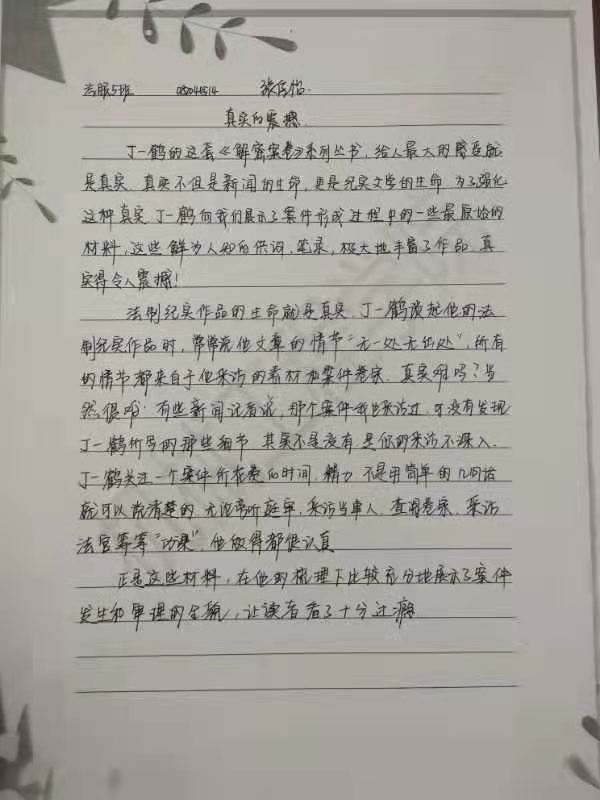 法服5班 张佳怡
真实的震撼
丁一鹤的这套《解密案卷》系列丛书，给人最大的感受就
是真实 真实不但是新闻的生命，更是纪实文学的生命 为了强化
这种真实 丁一鹤向我们展示了案件形成过程中的一些最原始的
材料，这些鲜为人知的供词、笔录，极大地丰富了作品 真
实得令人震撼！
法制纪实作品的生命就是真实 丁一鹤谈起他的法
制纪实作品时，常常说他文章的情节“无一处无出处”，所有
的情节都来自于他采访的素材和案件卷宗 真实难吗？当
然很难 有些新闻记者说，那个案件我也采访过，可没有发现
丁一鹤所写的那些细节 其实不是没有 是你的采访不深入
丁一鹤关注一个案件所花费的时间、精力 不是用简单的几句话
就可以说清楚的 无论旁听庭审，采访当事人、查阅卷宗、采访
法官等等“功课”，他做得都很认真
正是这些材料，在他的梳理下比较充分地展示了案件
发生和审理的全貌，让读者看了十分过瘾